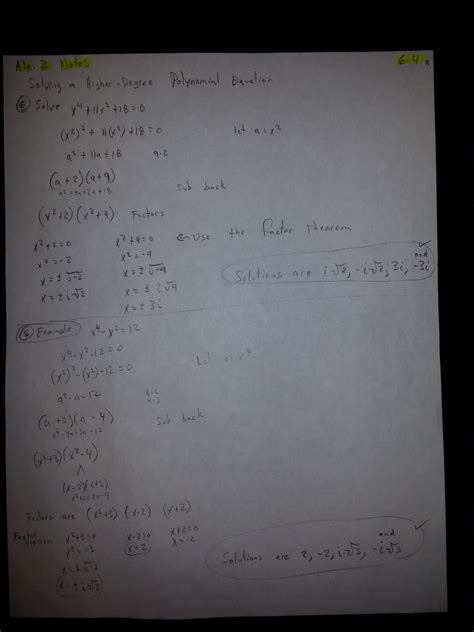 Alg. II Notes 6-4
Solving a Higher-Degree Polynomial Equation
⑥ Solve x⁴+11x²+18=0
(x²)²+11(x²)+18=0 let a=x²
a²+11a+18 9·2
(a+2)(a+9)
a²+9a+2a+18 Sub back
(x²+2)(x²+9) Factors
x²+2=0 x²+9=0 ← Use the Factor Theorem
x²=-2 x²=-9
x=±√-2 x=±√-9
x=±i√2 x=±i√9
x=±3i
Solutions are i√2, -i√2, 3i, and -3i
⑥ Example x⁴-x²=12
x⁴-x²-12=0
(x²)²-(x²)-12=0 Let
a²-a-12 6·2
4·3
(a+3)(a-4)
a²-4a+3a-12 Sub back
(x²+3)(x²-4)
(x-2)(x+2)
x²+2x-2x-4
Factors are (x²+3)(x-2)(x+2)
Factor theorem x²+3=0 x-2=0 x+2=0
x²=-3 x=2 x=-2
x=±√-3
x=±i√3
Solutions are 2, -2, i√3, and -i√3